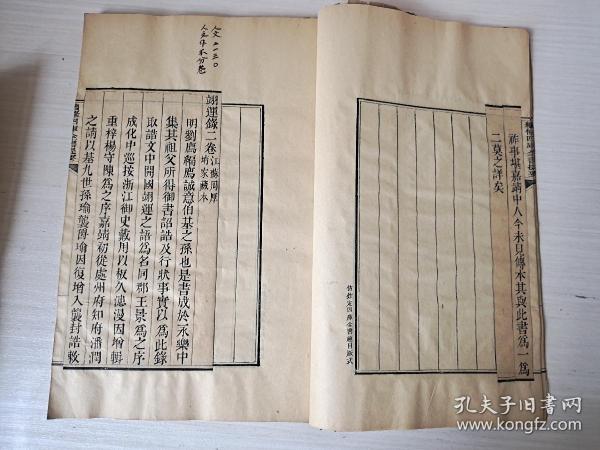 祚事堪嘉靖中人今未見傳本其與此書為一為
二莫之詳矣
仿欽定四庫全書總目版式
人文 二一三〇
翊運錄二卷江蘇周厚堉家藏本
明劉廌編廌誠意伯基之孫也是書成於永樂中
集其祖父所得御書詔誥及行狀事實以為此錄
取誥文中開國翊運之語為名同郡王景為之序
成化中巡按浙江御史戴用以板久漶漫因增輯
重梓楊守陳為之序嘉靖初從處州府知府潘潤
之請以基九世孫瑜襲爵瑜因復增入襲封誥敕
孔夫子旧书网
www.kongfz.com